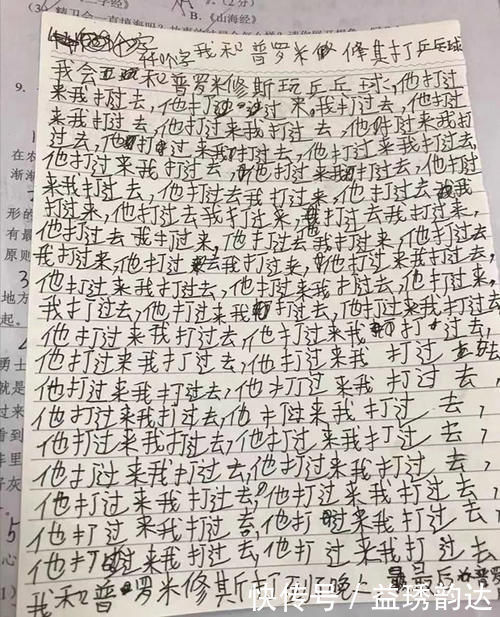 《山海经》
我和普罗米修斯打乒乓球
我会和普罗米修斯玩乒乓球,他打过
来我打过去,他打过来,我打过去,他打过
来我打过去,他打过来我打过去,他打过来我打
过去,他打过来我打过去,他打过来我打过去,
他打过来我打过去,他打过来我打过去,他打过
来我打过去,他打过去我打过来,他打过去我
打过来,他打过去我打过来,我打过去我打过来,
他打过去我打过来,他打过去我打过来,他打过去
我打过来,他打过来我打过去,他打过来我打过去,
他打过来我打过去,他打过来我打过去,他打过来,
我打过去,他打过来我打过去,他打过来,我打过去
他打过来我打过去,他打过来我打过去,
他打过来我打过去,他打过来我打过去
他打过来我打过去,他打过来我打过去,
他打过来我打过去,他打过来我打过去,
他打过来我打过去,他打过来我打过去,
他打过来我打过去,他打过来我打过去,
他打过来我打过去,他打过来我打过去,
他打过来我打过去,他打过来我打过去,
他打过来我打过去,他打过来我打过去
我和普罗米修斯打到晚最后普罗
快传号/益琇韵达